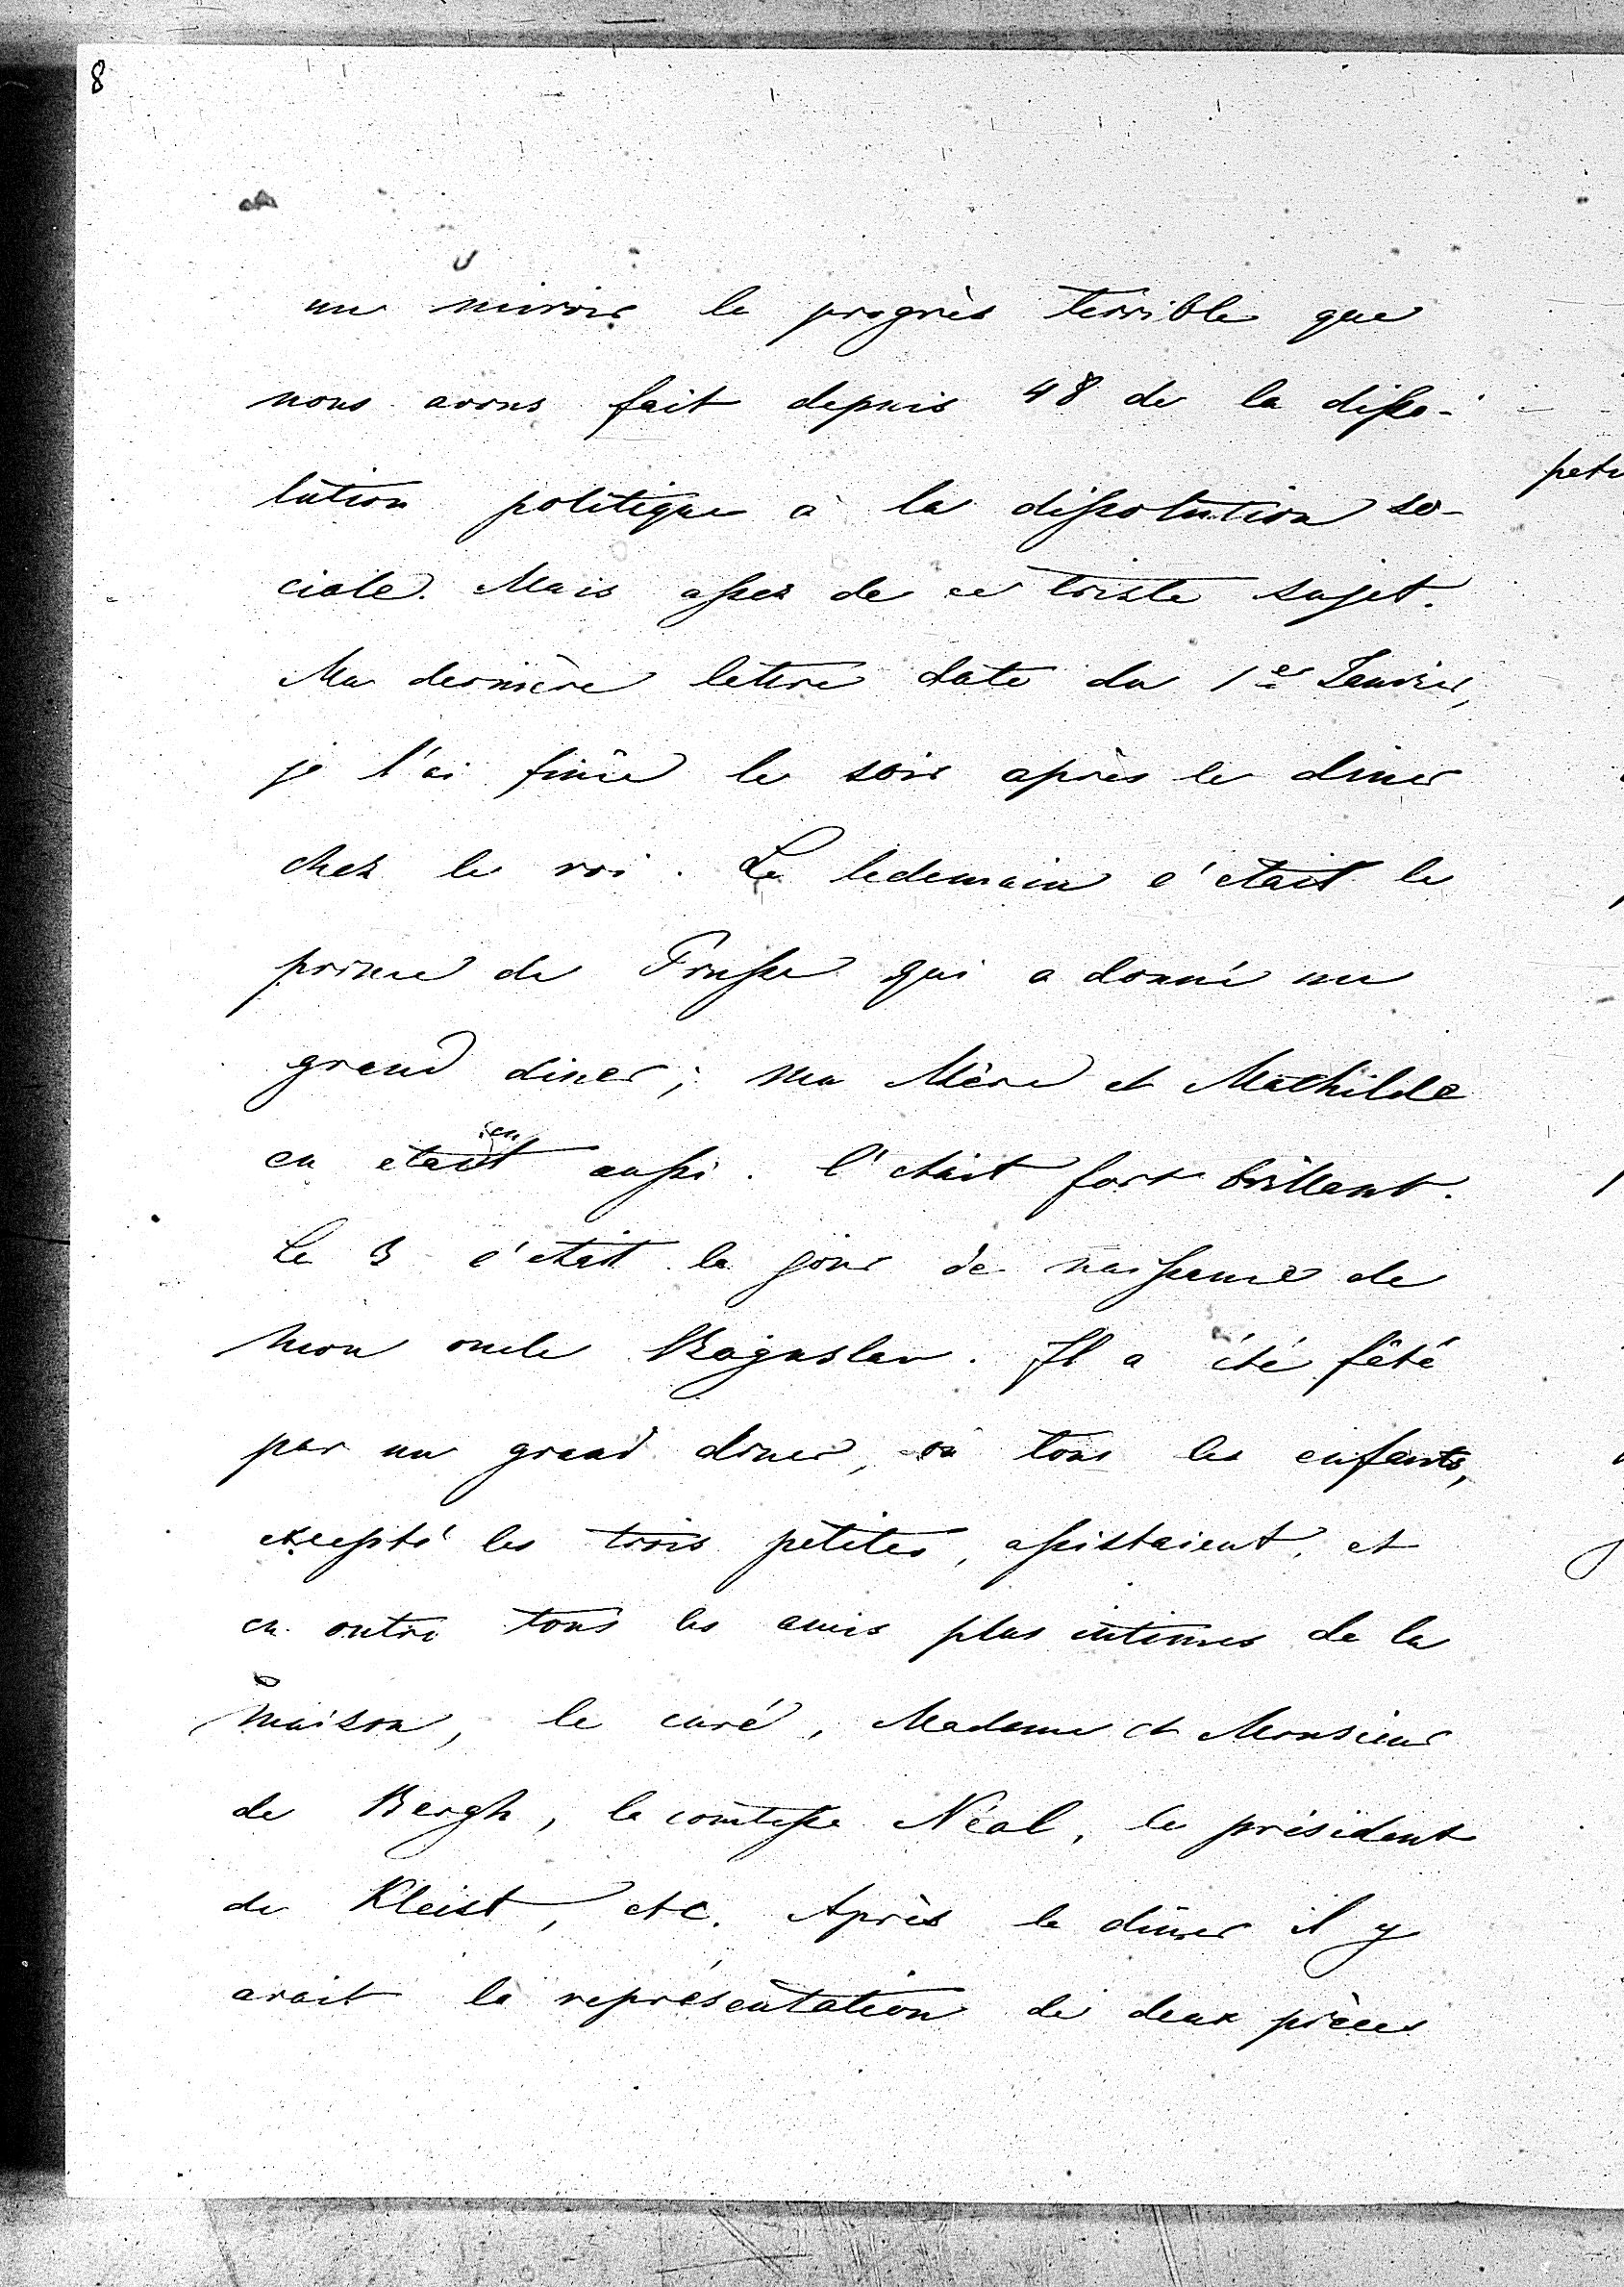 8
un miroir le progrès terrible que
nous avons fait depuis 48 de la disso-
lution politique à la dissolution so-
ciale. Mais assez de ce triste sujet.
Ma dernière lettre date du 1er Janvier,
je l'ai finie le soir après le diner
chez le roi. Le ledemain c'était le
prince de Prusse qui a donné un
grand diner; ma Mère et Mathilde
en etaient aussi. C'était fort brillant.
Le 3 c'était le jour de naissance de
mon oncle Boguslav. Il a été fêté
par un grand diner, où tous les enfants,
excepté les trois petites, assistaient, et
en outre tous les amis plus intimes de la
maison, le curé, Madame et Monsieur
de Bergh, la comtesse Néal, le président
de Kleist, etc. Après le diner il y
avait la représentation de deux pièces